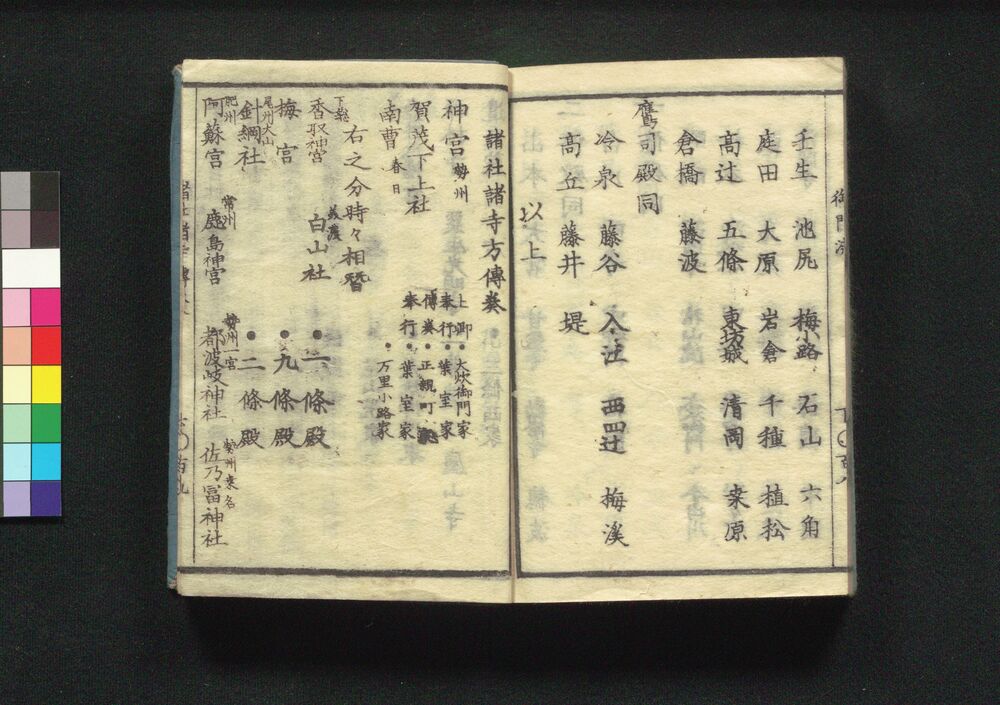 壬生 池尻 梅小路 石山 六角
庭田 大原 岩倉 千種 植松
高辻 五條 東坊城 清岡 桒原
倉橋 藤波
鷹司殿同
冷泉 藤谷 入江 西四辻 梅溪
高丘 藤井 堤
以上
諸社諸寺方傳奏
神宮 勢州 上卿 大炊御門家
奉行 葉室家
賀茂下上社 傳奏 正親町家
奉行 葉室家
南曹 春日 万里小路家
右之分時々相替
下総 香取神宮 美濃 白山社 一條殿
梅宮 九條殿
尾州犬山 針綱社 二條殿
肥州 阿蘇宮 常州 鹿島神宮 勢州一宮 都波岐神社 勢州桒名 佐乃冨神社